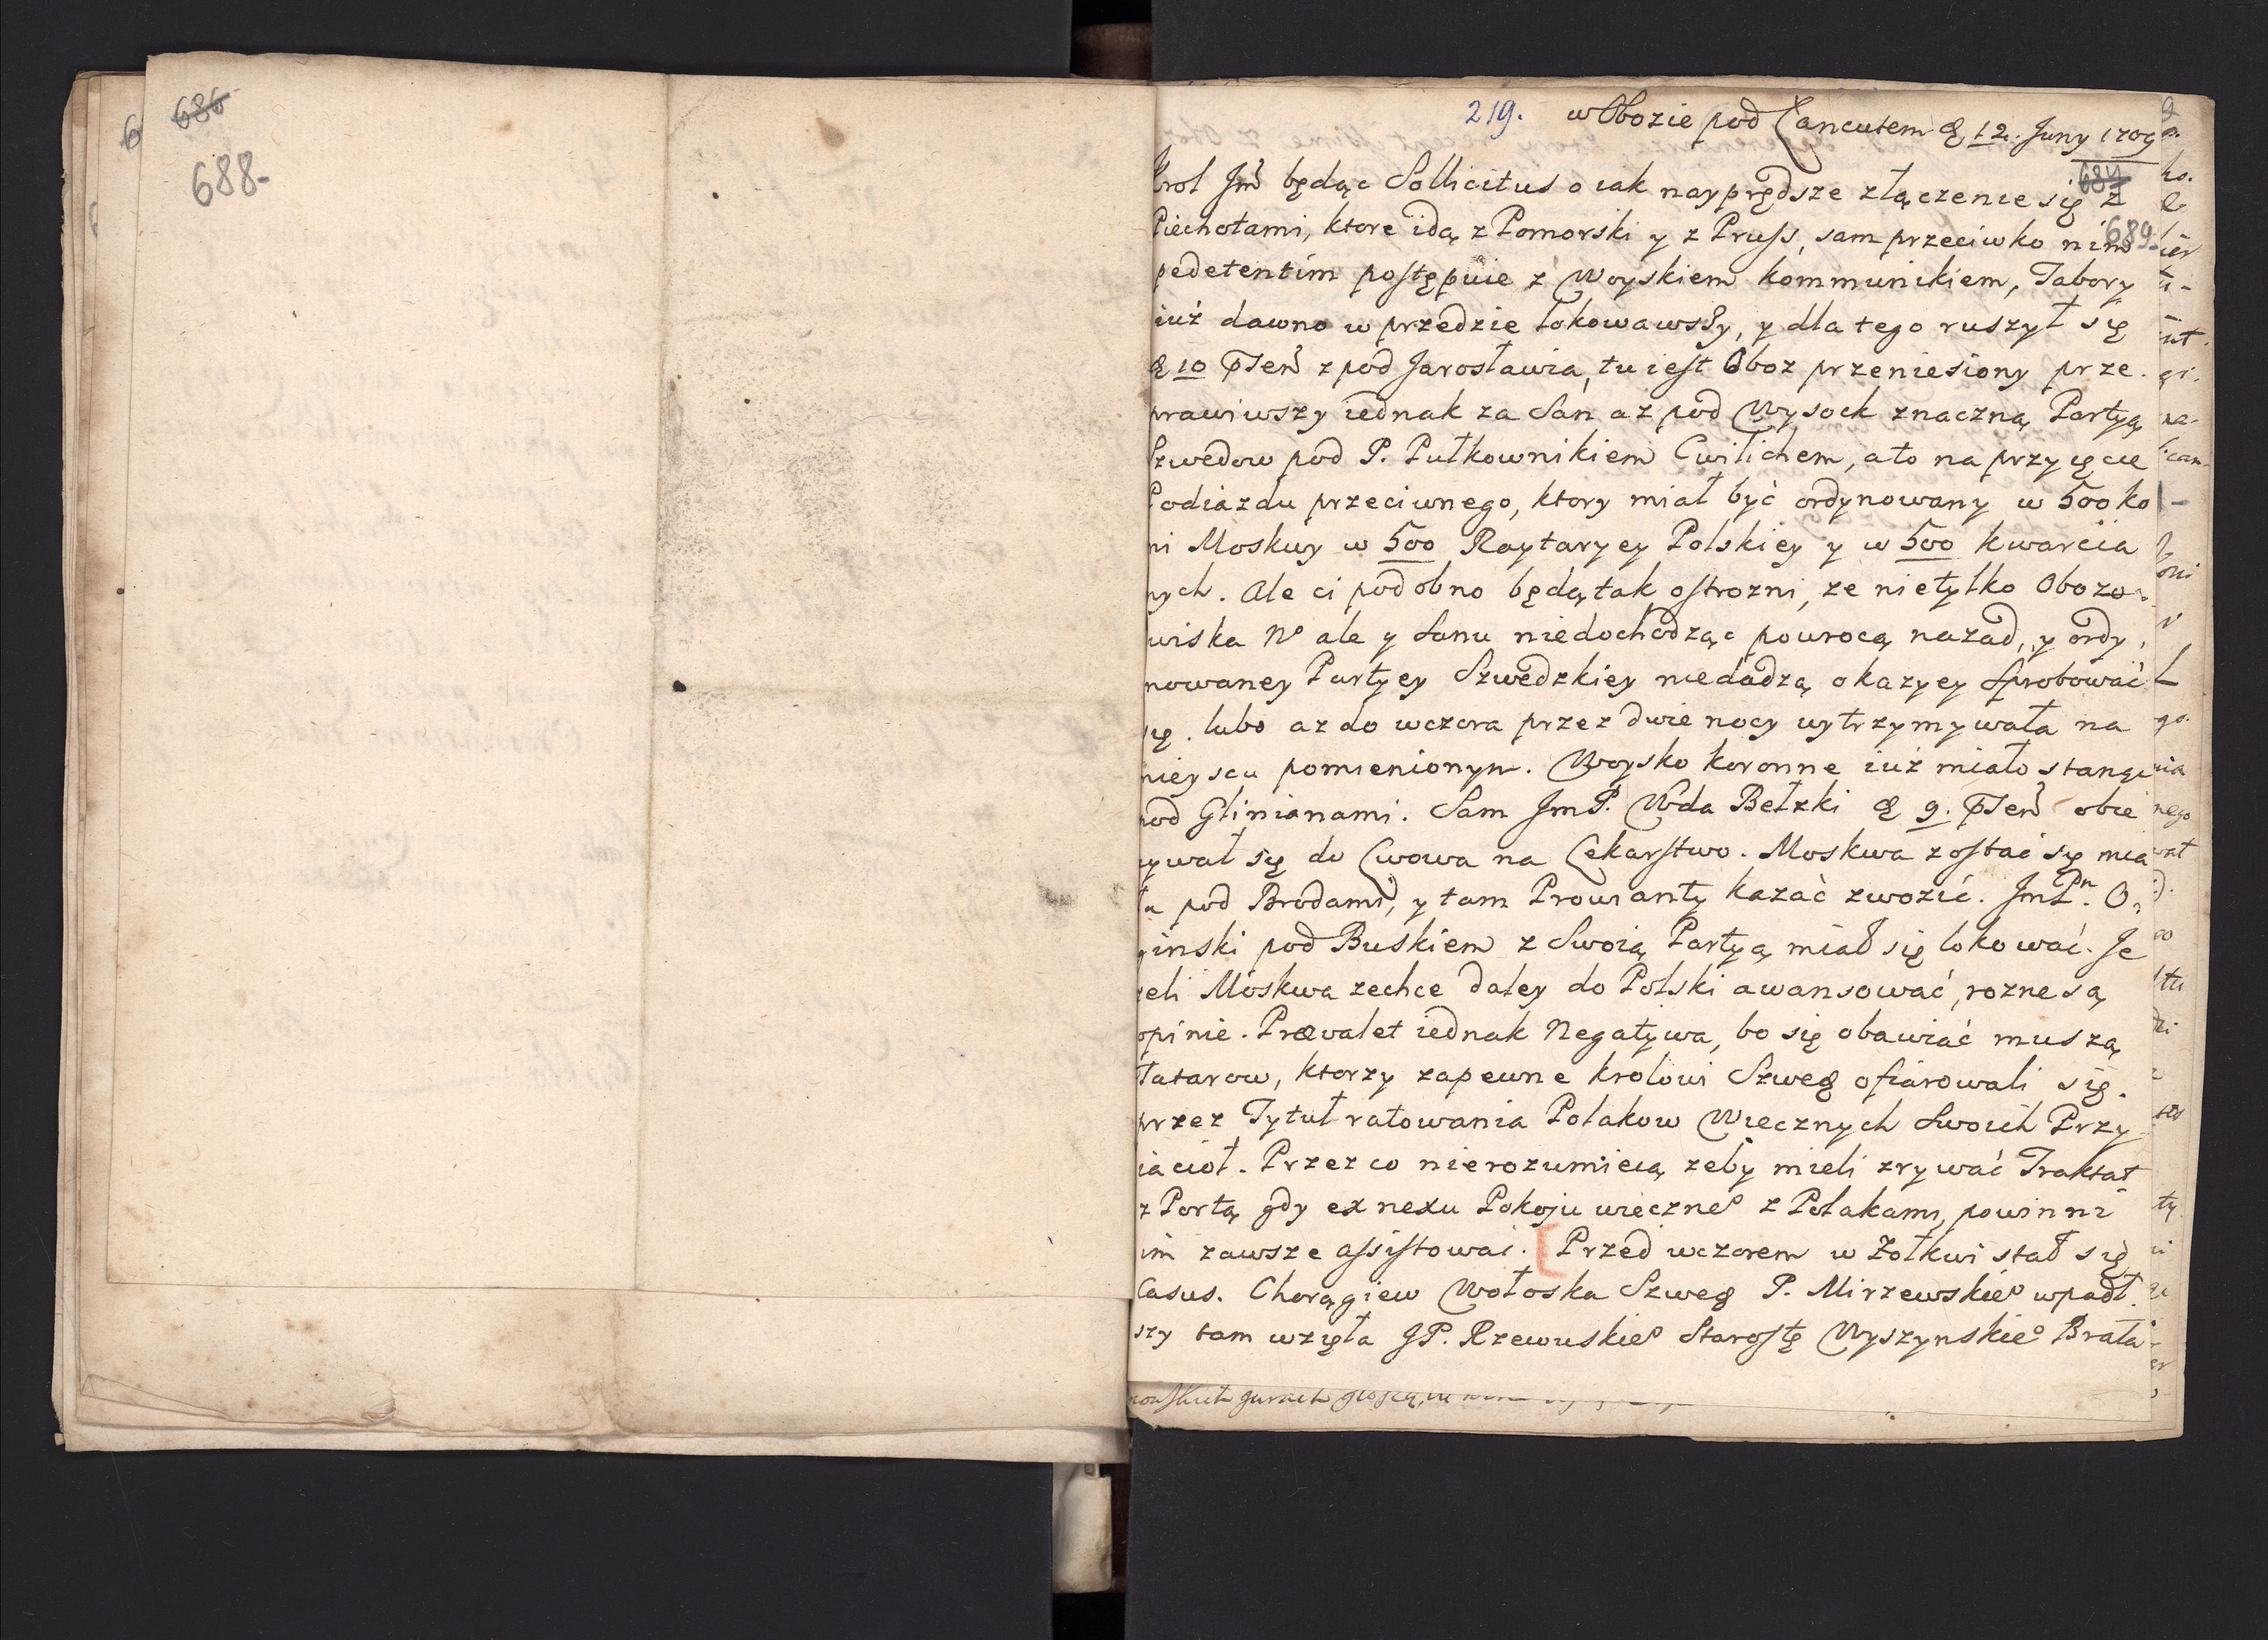 686
688-
219. w Obozie pod Lancutem d 12. Juny 1709
687
689.
Krol Jm̃ będąc Sollicitus o iak nayprędsze złączenie się z
Piechotami, ktore idą z Pomorski y z Pruss, sam przeciwko nim
pedetentim postępuie z Woyskiem kommunikiem, Tabory
iuż dawno w przedzie lokowawszy, y dla tego ruszył się
d 10 pnsen z pod Jarosławia, tu iest Oboz przeniesiony prze.
prawiwszy iednak za San az pod Wysock znaczną Partyą
Szwedow pod P. Pułkownikiem Cwilichem, a to na przyięcie
Podiazdu przeciwnego, ktory miał być ordynowany w 500 ko
ni Moskwy w 500 Raytaryey Polskiey y w 500 kwarcia
nych. Ale ci podobno będą tak ostrozni, ze nietylko Obozo-
wiska No ale y Sanu niedochodząc powrocą nazad, y ordy,
nowaney Partyey Szwedzkiey niedadzą okazyey Sprobować
się. lubo az do wczora przez dwie nocy wytrzymywała na
mieyscu pomienionym. Woysko koronne iuż miało stanąc
pod Glinianami. Sam JmP. Wda Bełzki d 9. pnsen obie
cywał się do Lwowa na Lekarstwo. Moskwa zostać się mia
ła pod Brodami, y tam Prowianty kazać zwozić. JmPn. O,
ginski pod Buskiem z Swoią Partyą miał się lokować. Je
zeli Moskwa zechce daley do Polski awansować, rozne są
opinie. Prævalet iednak Negatywa, bo się obawiać muszą
Tatarow, ktorzy zapewne krolowi Szweg ofiarowali się.
przez Tytuł ratowania Polakow Wiecznych Swoich Przy
iacioł. Przez co nierozumieią zeby mieli zrywać Traktat
z Portą gdy ex nexu Pokoju wieczneo z Polakami, powinni
im zawsze assistowac. [Przed wczorem w Żołkwi stał się
Casus. Chorągiew Wołoska Szweg P. Mirzewskieo wpadł.
szy tam wzięła JP. Rzewuskieo Starostę Wyszynskieo Brata